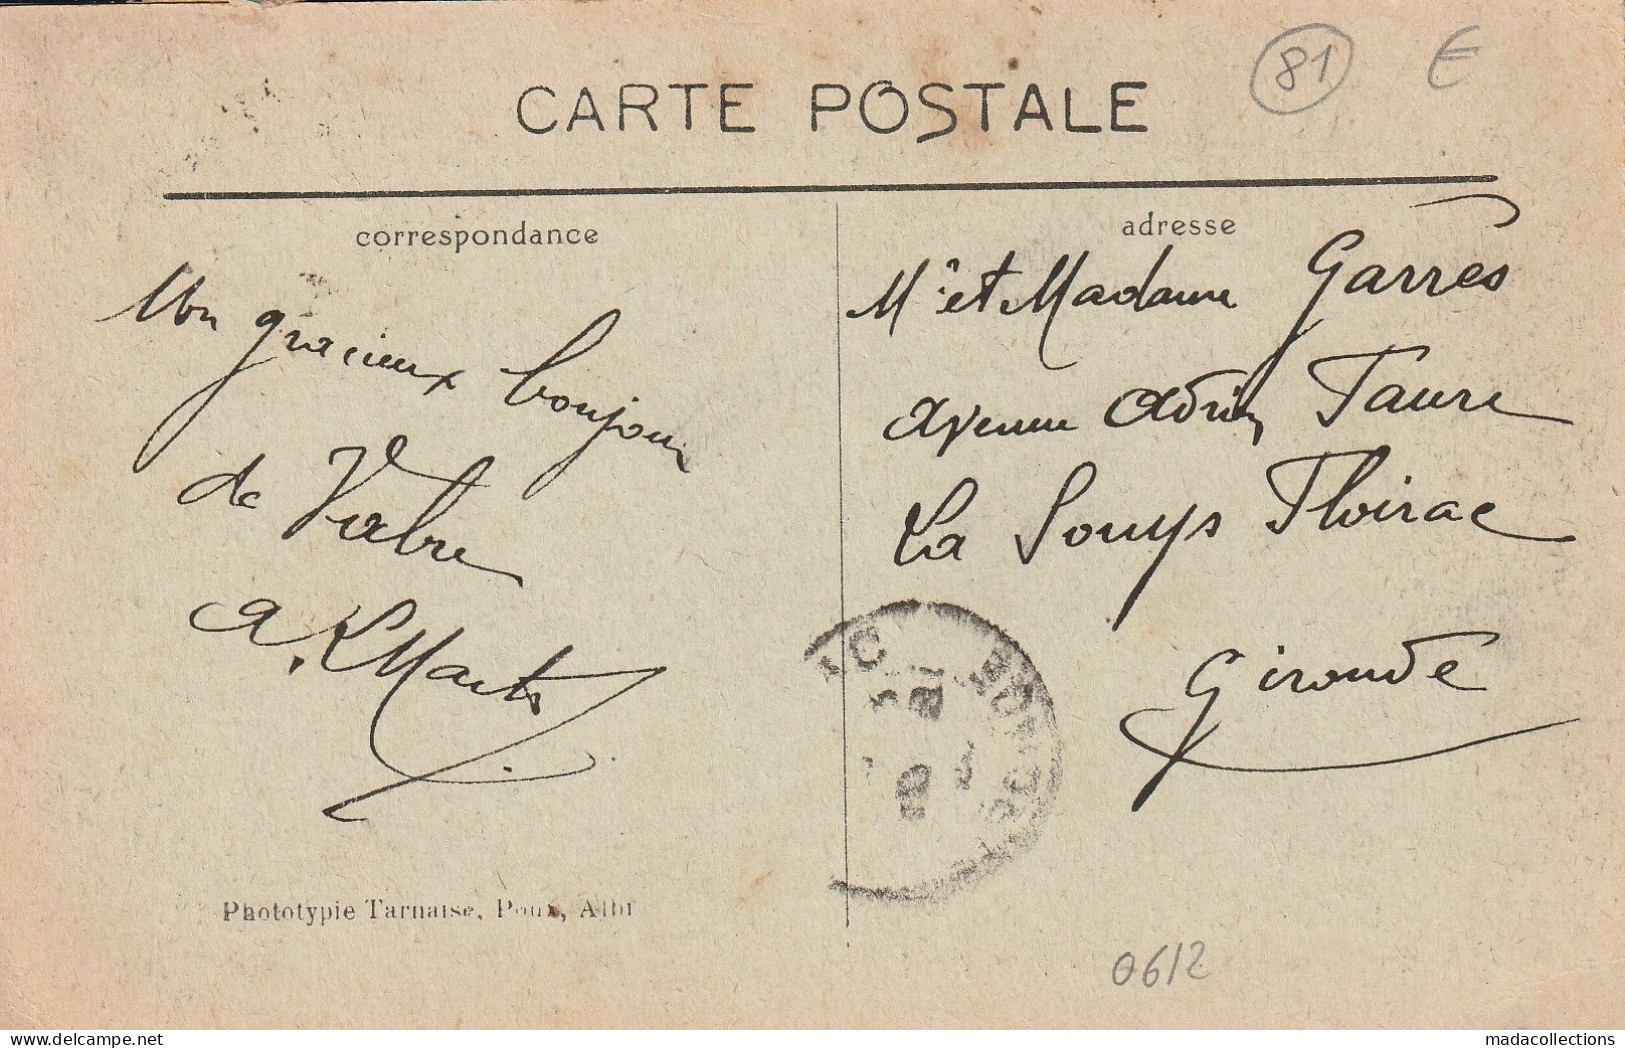 CARTE POSTALE
81
€
correspondance
Un gracieux bonjour
de Vabre
adresse
Mr et Madame Garrès
avenue Adrien Faure
La Souys Floirac
Gironde
Phototypie Tarnaise, Poux, Albi
0612
www.madacollections.delcampe.net